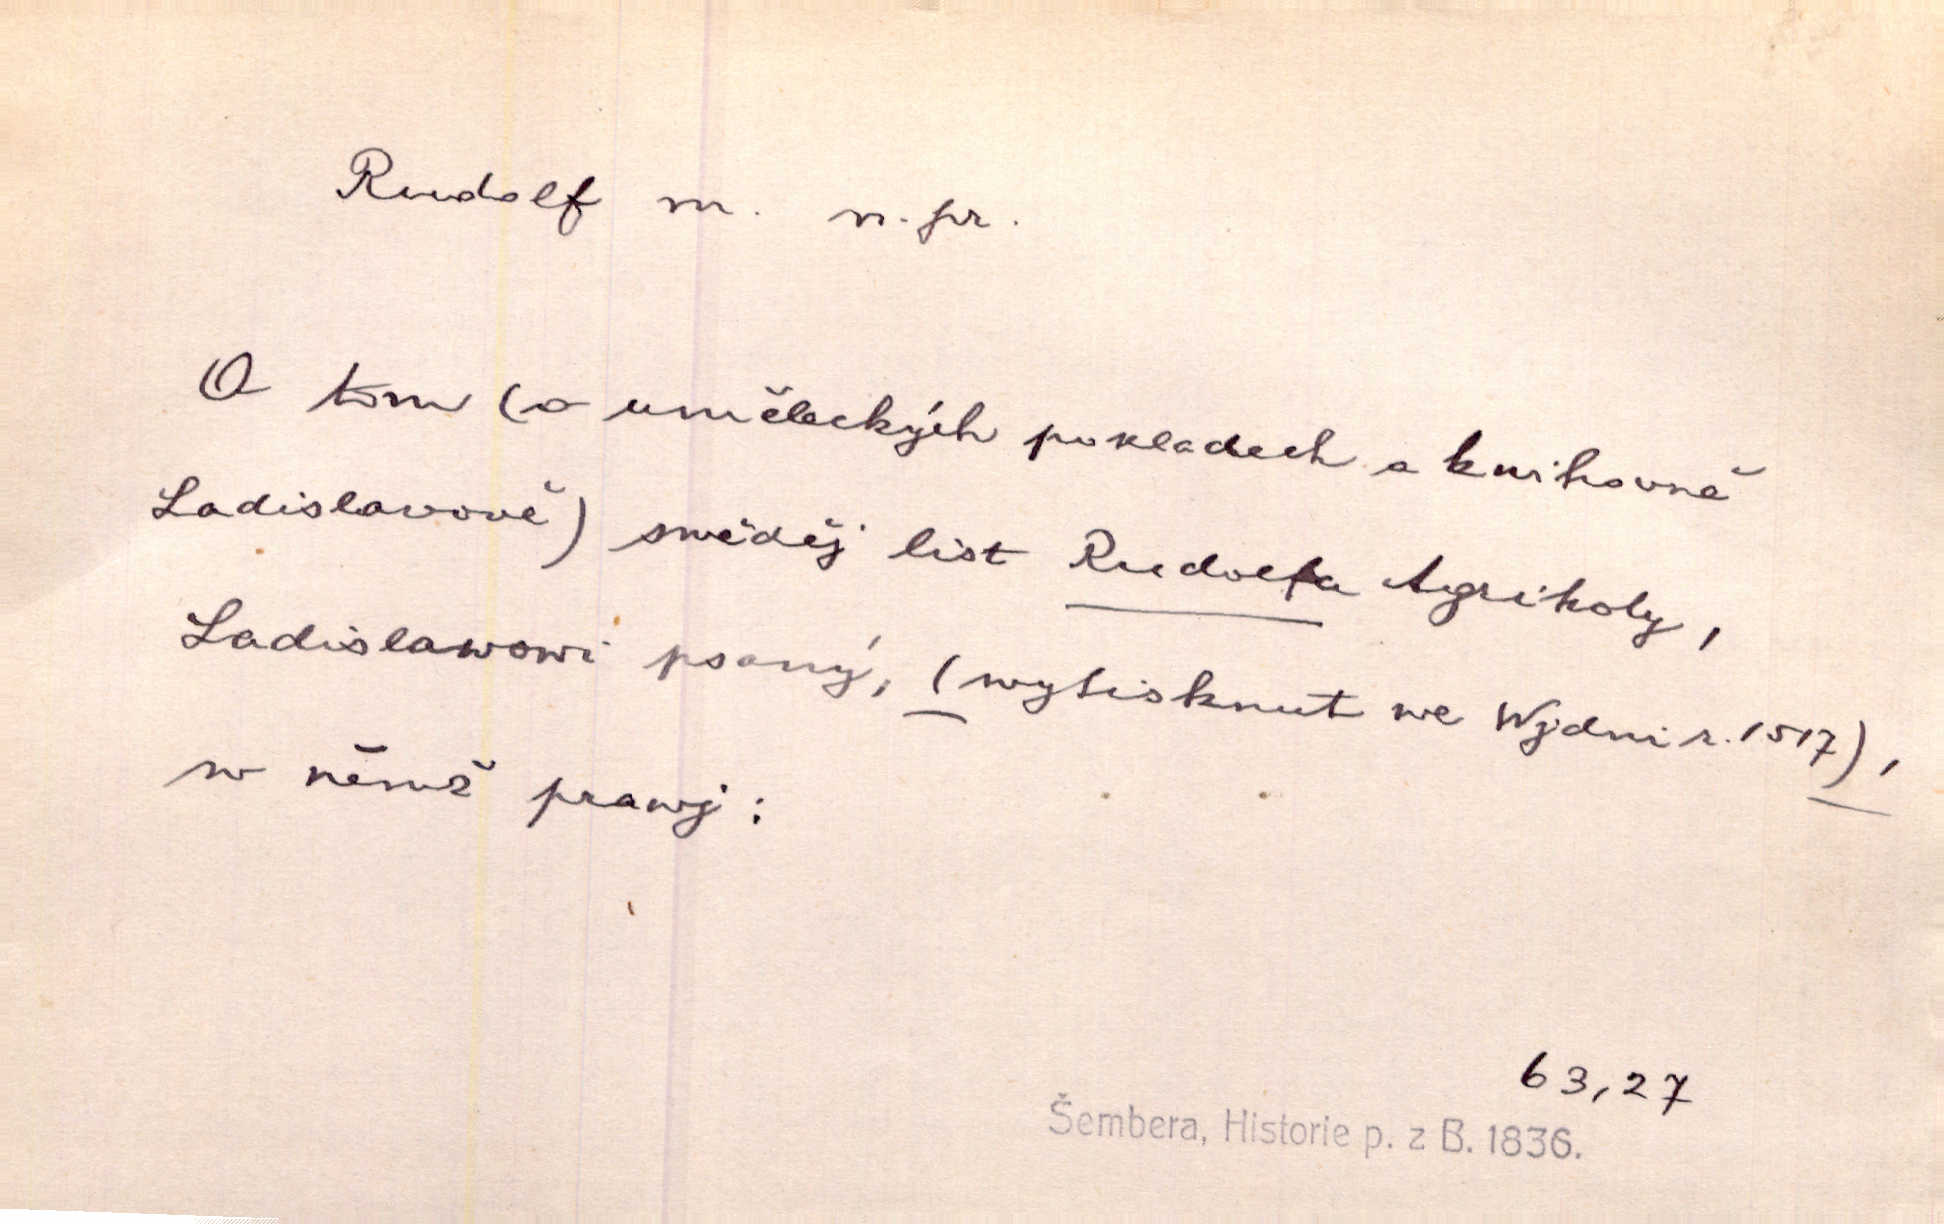 Rudolf m. n. pr.
O tom (o uměleckých pokladech a knihovně
Ladislavově) swědčj list Rudolfa Agrikoly,
Ladislawowi psaný, (wytisknut we Wjdni r. 1517),
w němž prawj:
63,27
Šembera, Historie p. z B. 1836.